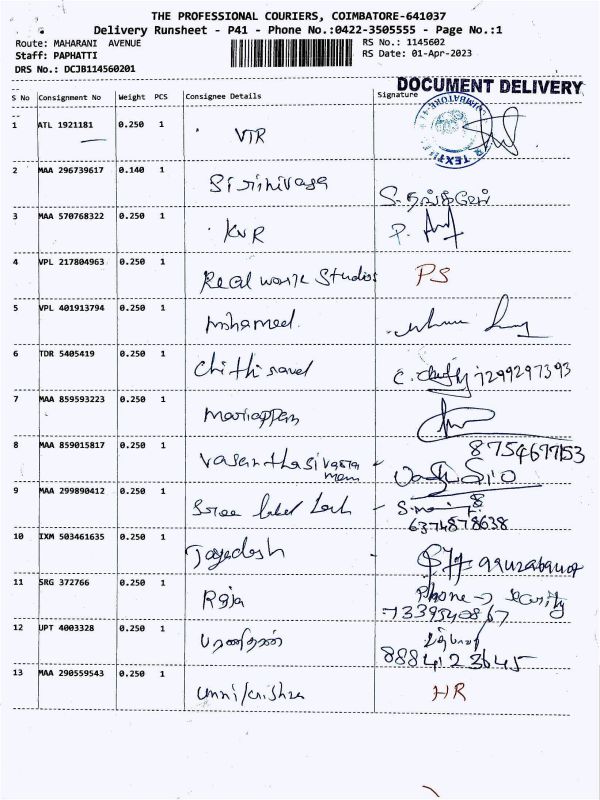 THE PROFESSIONAL COURIERS, COIMBATORE-641037
Delivery Runsheet - P41 - Phone No.:0422-3505555 - Page No.:1
Route: MAHARANI AVENUE RS No.: 1145602
Staff: PAPHATTI RS Date: 01-Apr-2023
DRS No.: DCJB114560201
DOCUMENT DELIVERY
S No Consignment No Weight PCS Consignee Details Signature
1 ATL 1921181 0.250 1 VTR
2 MAA 296739617 0.140 1 Sirinivasa
3 MAA 570768322 0.250 1 KVR P.
4 VPL 217804963 0.250 1 Real work Studios PS
5 VPL 401913794 0.250 1 mohamed
6 TDR 5405419 0.250 1 Chithiravel 7299297393
7 MAA 859593223 0.250 1 Mariappan
8 MAA 859015817 0.250 1 Vasanthasivagra 8754677153
mam
9 MAA 299890412 0.250 1 Sree label Tech
6374878638
10 IXM 503461635 0.250 1 Jayedesh
11 SRG 372766 0.250 1 Raja Phone → Security
7339540867
12 UPT 4003328 0.250 1 பரணிதரன்
8884123645
13 MAA 290559543 0.250 1 unni/crishna HR